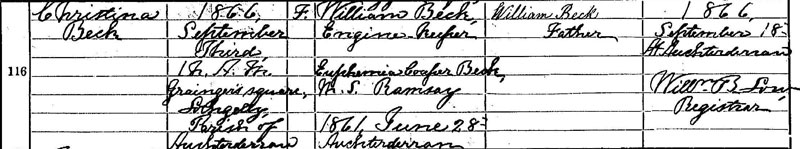 Christina
Beck
116
1866,
September
Third,
1h. A. M.
Grainger's square,
Lochgelly,
Parish of
Auchterderran
F.
William Beck,
Engine-keeper
Euphemia Cooper Beck,
M. S. Ramsay
1861, June 28th
Auchterderran
William Beck
Father
1866,
September 18th
At Auchterderran
Willm B. Low
Registrar